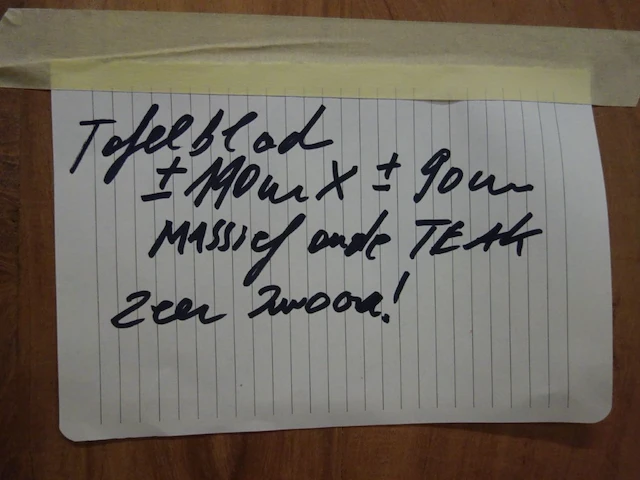 Tafelblad
± 190cm X ± 90cm
MASSief oude TEAK
zeer zwaar!